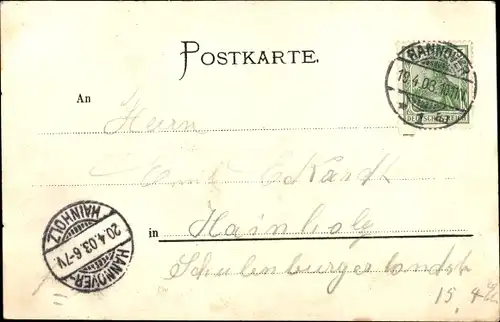 POSTKARTE.
HANNOVER
19.4.03.10-11V.
* 1 *a
DEUTSCHES REICH
An
Herrn
Emil Eckardt
in Hainholz
Schulenburgerlandstr
15,
HANNOVER-
20.4.03.6-7V.
HAINHOLZ